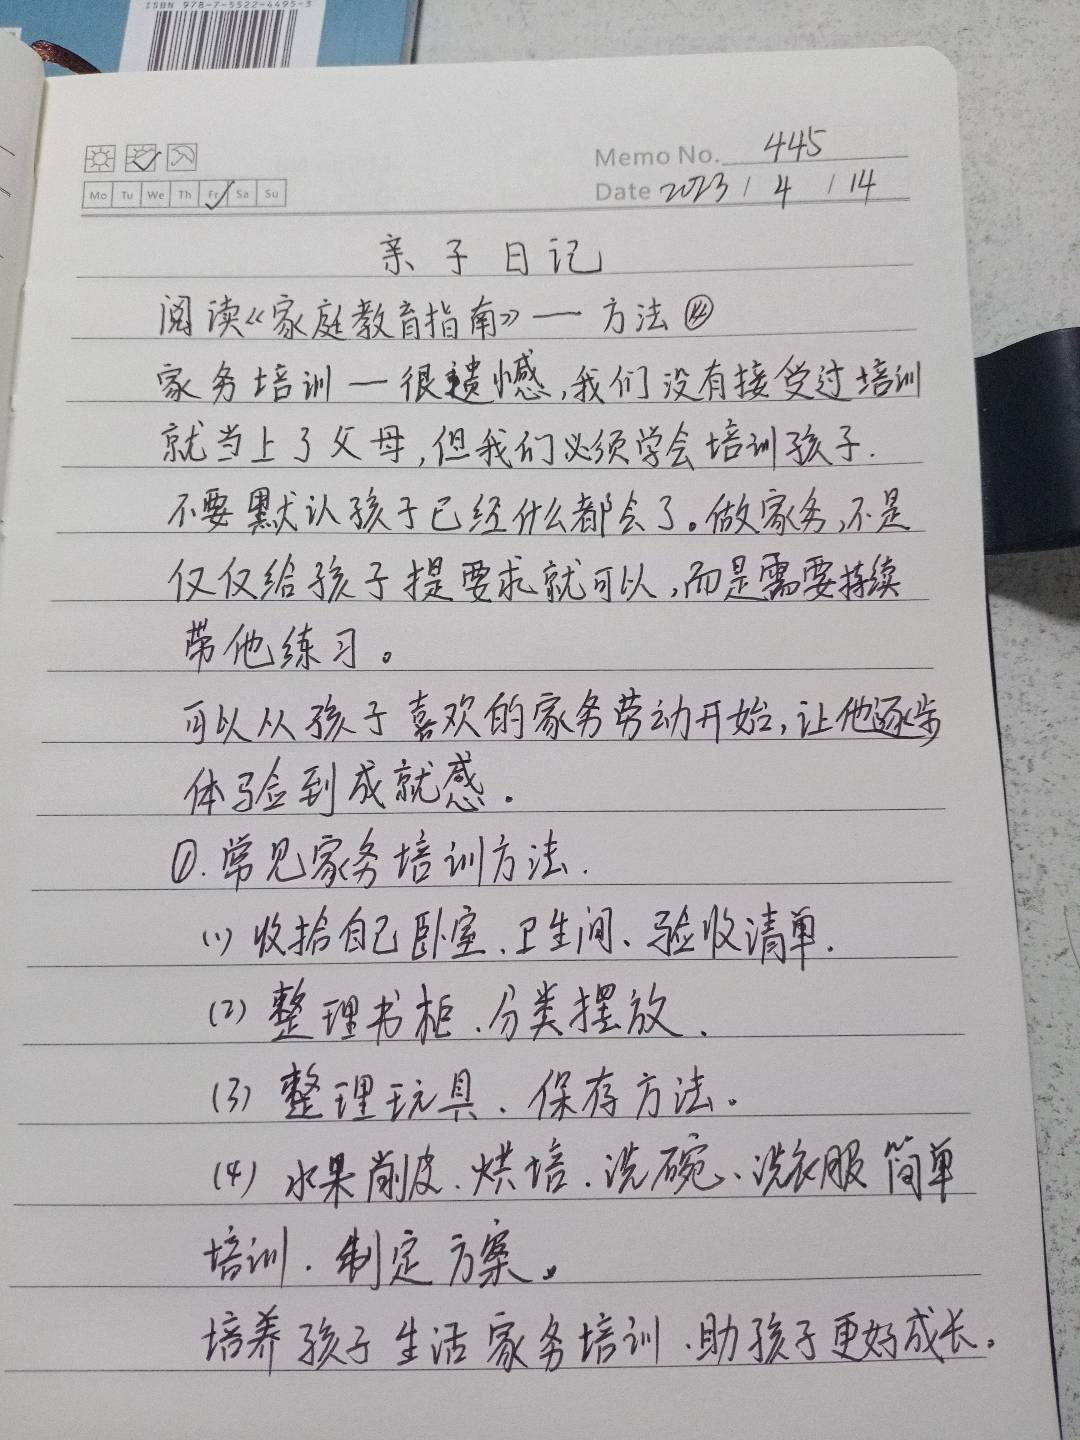 ISBN 978-7-5522-4495-3
Memo No. 445
Mo Tu We Th Fr Sa Su
Date 2023 / 4 / 14
亲子日记
阅读《家庭教育指南》一方法⑭
家务培训一很遗憾,我们没有接受过培训
就当上了父母,但我们必须学会培训孩子.
不要默认孩子已经什么都会了。做家务,不是
仅仅给孩子提要求就可以,而是需要持续
带他练习。
可以从孩子喜欢的家务劳动开始,让他逐步
体验到成就感.
①.常见家务培训方法.
(1)收拾自己卧室、卫生间、验收清单.
(2)整理书柜、分类摆放.
(3)整理玩具、保存方法。
(4)水果削皮、烘培、洗碗、洗衣服简单
培训、制定方案。
培养孩子生活家务培训、助孩子更好成长。